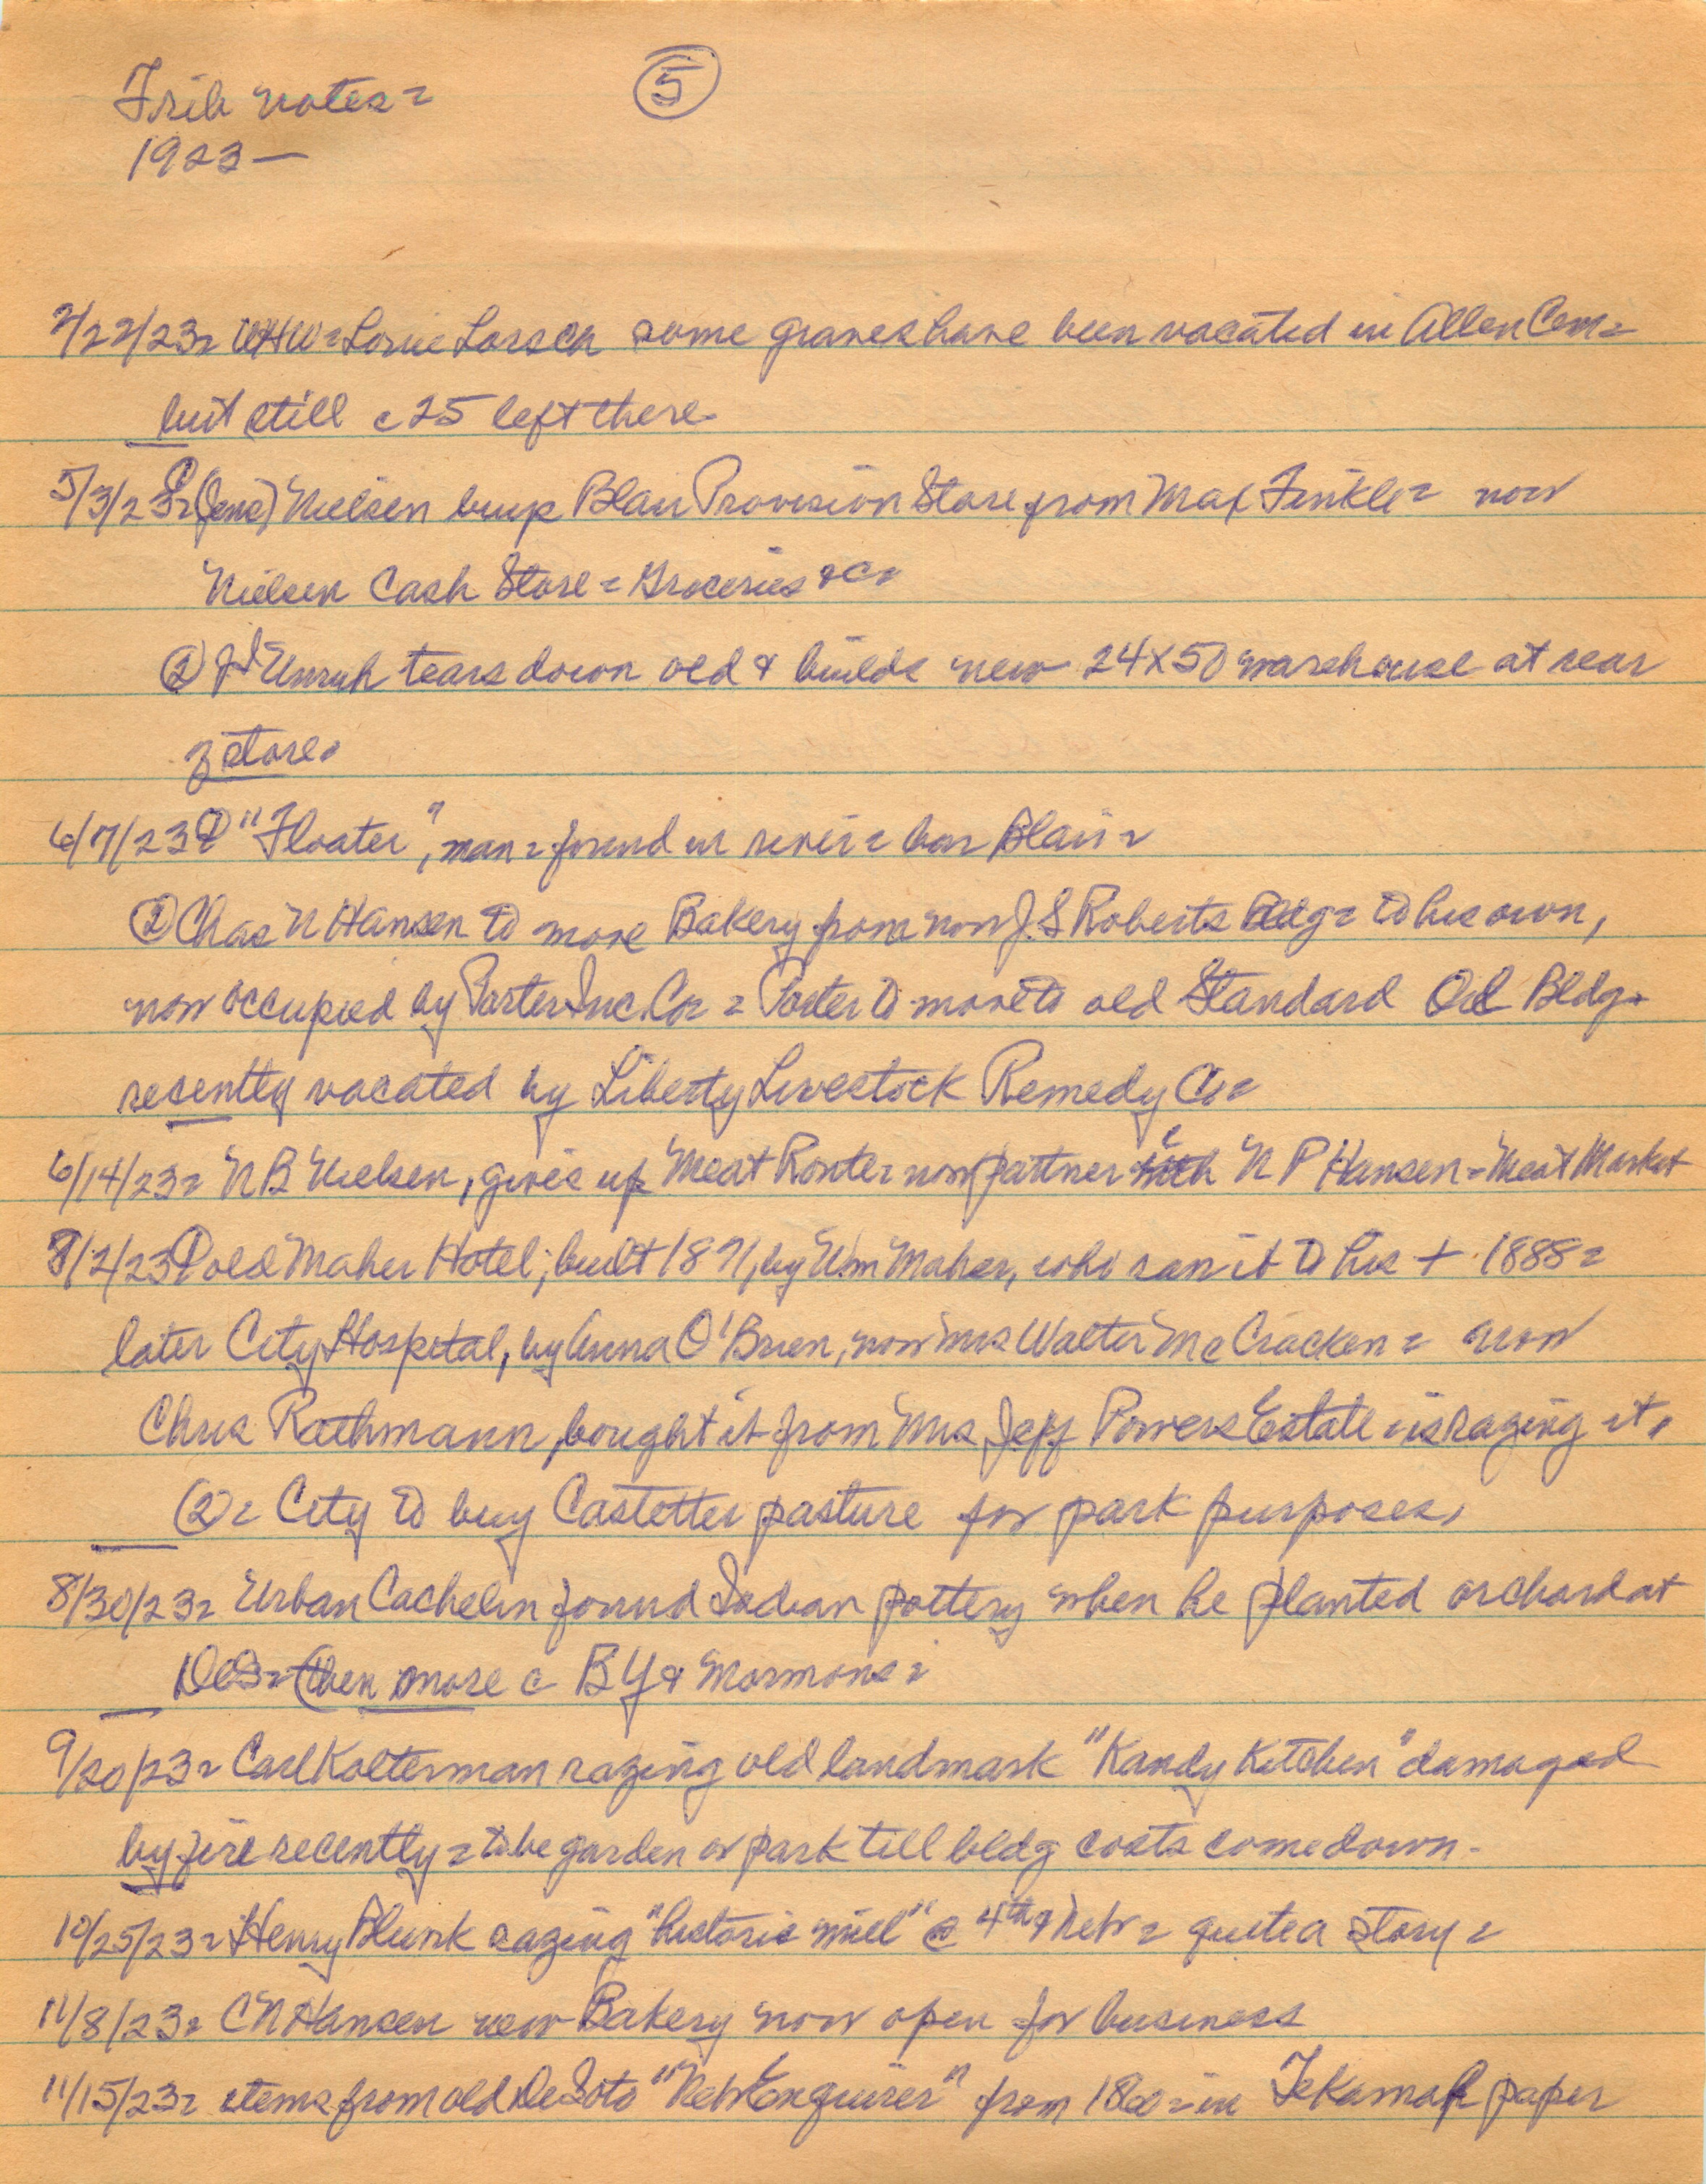 Trib notes =
5
1923 —
2/22/23 = WHW = Lorsch some graves have been vacated in Allen Cem =
but still c 25 left there
5/3/23 = (Jens) Nielsen buys Blair Provision Store from Max Finkle = now
Nielsen Cash Store = Groceries &c.
② J I Unruh tears down old & builds new 24x50 warehouse at rear
of store.
6/7/23 ① "Floater", man = found in river = Blair =
② Chas N Hansen to move Bakery from now J. S Roberts Bldg = to his own,
now occupied by Porter Inc. Co = Porter to move to old Standard Oil Bldg.
recently vacated by Liberty Livestock Remedy Co =
6/14/23 = N B Nielsen, gives up Meat Route = now partner with N P Hansen = Meat Market
8/2/23 ① old Maher Hotel, built 1871, by Wm Maher, who ran it to his + 1888 =
later City Hospital, by Anna O'Brien, now Mrs Walter McCracken = now
Chris Rathmann, bought it from Mrs Jeff Powers Estate = is razing it.
② = City to buy Castetter pasture for park purposes.
8/30/23 = Urban Cachelin found Indian pottery when he planted orchard at
DeS = (then more c BY & Mormons =
9/20/23 = Carl Kolterman razing old landmark "Kandy Kitchen" damaged
by fire recently = to be garden or park till bldg costs come down -
10/25/23 = Henry Blunk razing "historic mill" @ 4th & Neb = quite a story =
11/8/23 = C N Hansen new Bakery now open for business
11/15/23 = items from old DeSoto "Neb Enquirer" from = in Tekamah paper